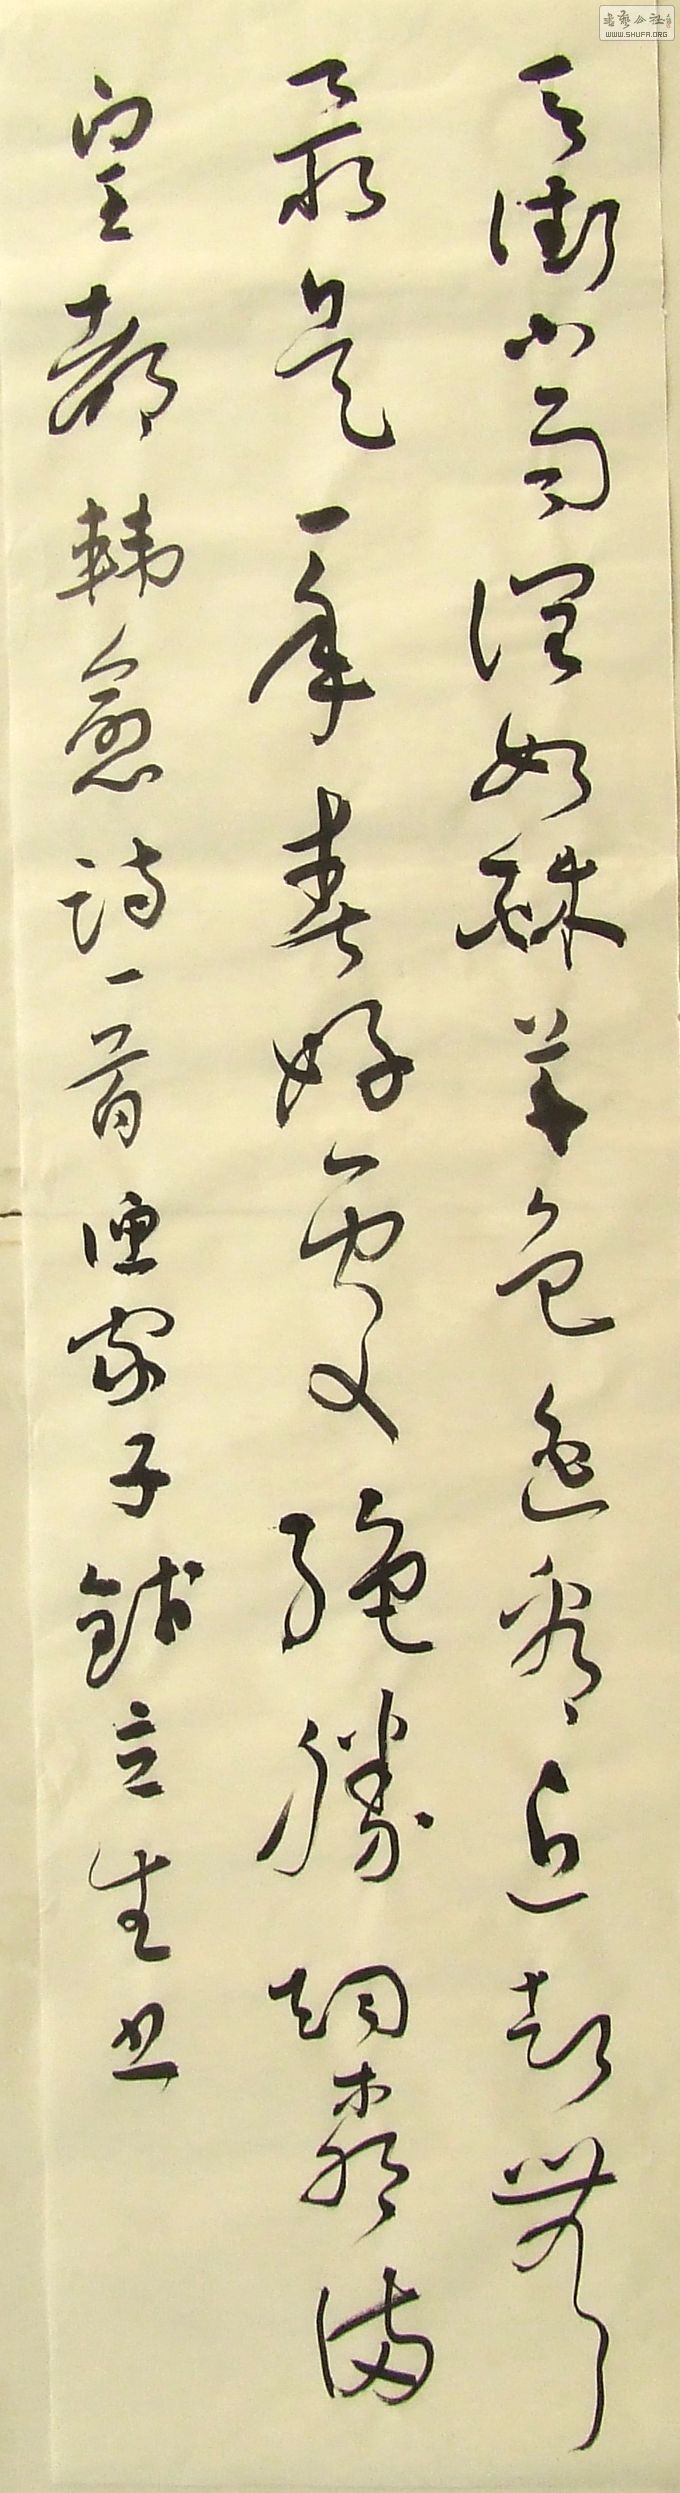 天街小雨润如酥草色遥看近却無
最是一年春好處絕勝烟柳满
皇都 韩愈诗一首 渔家子 立生书
书艺公社
WWW.SHUFA.ORG